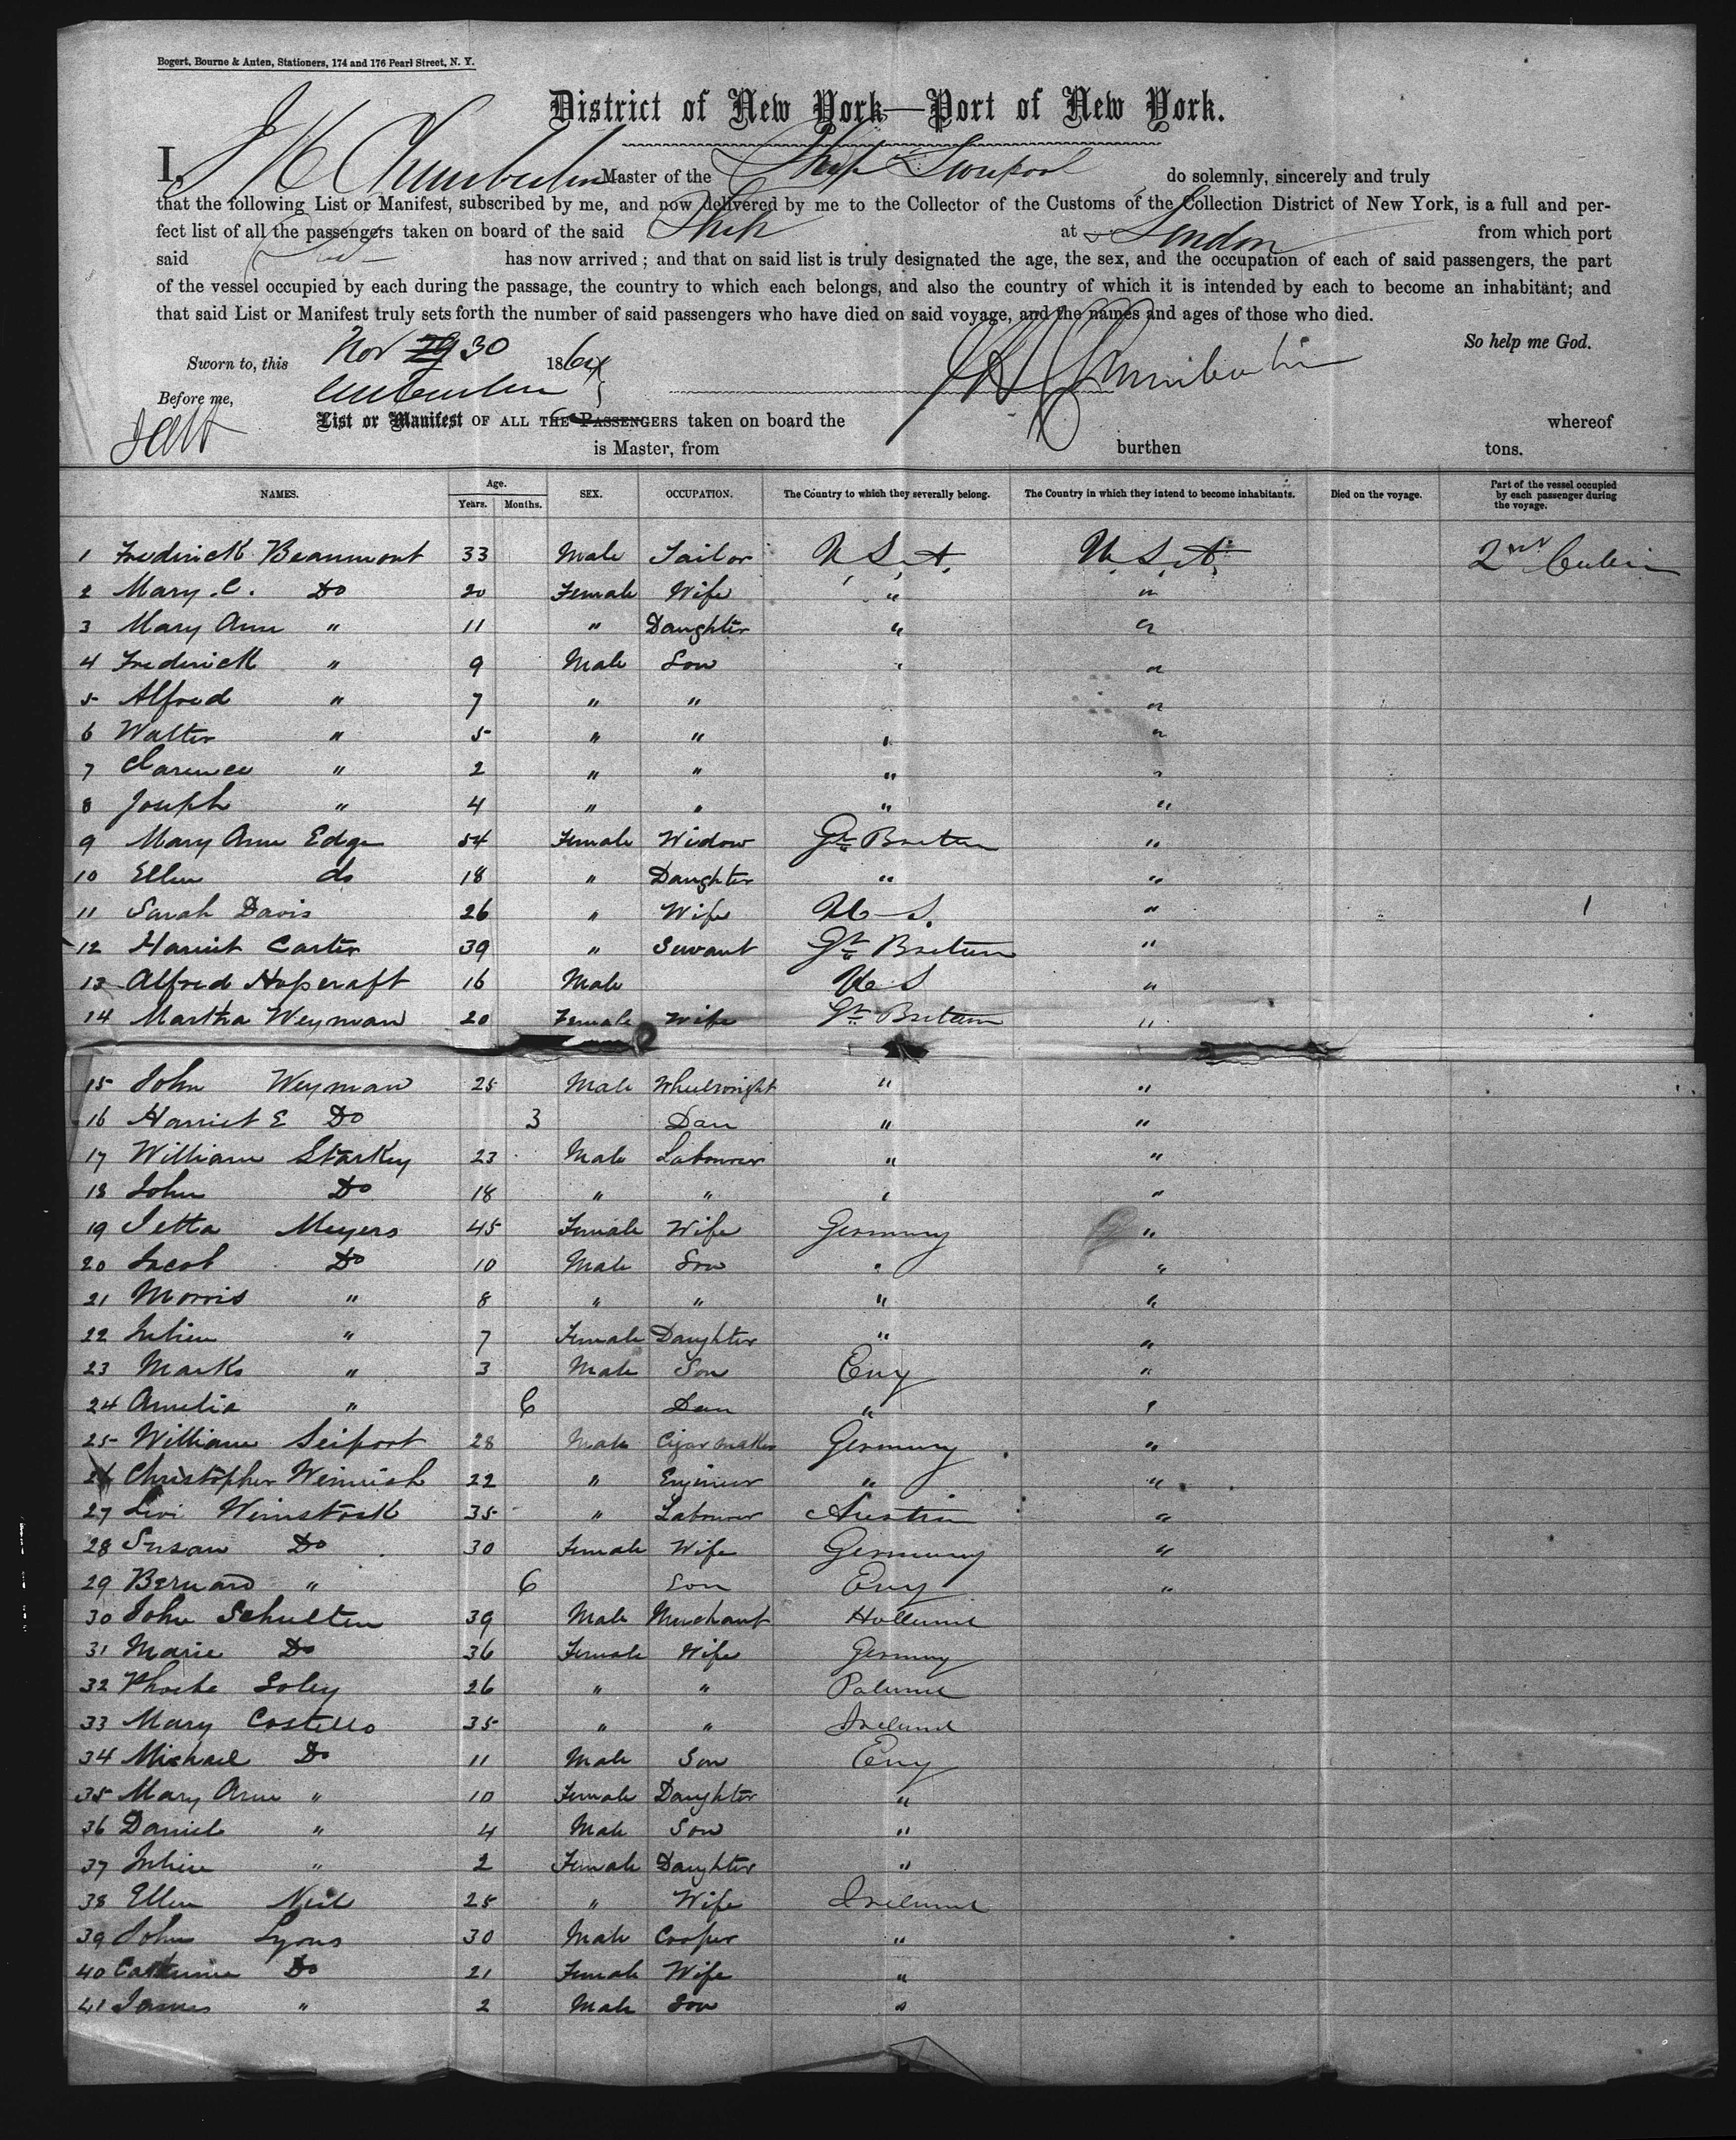 Bogert, Bourne & Anten, Stationers, 174 and 176 Pearl Street, N. Y.
District of New York—Port of New York.
I, J H Chamberlin Master of the Ship Liverpool do solemnly, sincerely and truly
that the following List or Manifest, subscribed by me, and now delivered by me to the Collector of the Customs of the Collection District of New York, is a full and per-
fect list of all the passengers taken on board of the said Ship at London from which port
said has now arrived; and that on said list is truly designated the age, the sex, and the occupation of each of said passengers, the part
of the vessel occupied by each during the passage, the country to which each belongs, and also the country of which it is intended by each to become an inhabitant; and
that said List or Manifest truly sets forth the number of said passengers who have died on said voyage, and the names and ages of those who died.
So help me God.
Sworn to, this Nov 29 30 186
Before me,
List or Manifest OF ALL THE PASSENGERS taken on board the whereof
is Master, from burthen tons.
NAMES. Age. Years. Months. SEX. OCCUPATION. The Country to which they severally belong. The Country in which they intend to become inhabitants. Died on the voyage. Part of the vessel occupied by each passenger during the voyage.
1 Frederick Beaumont 33 Male Tailor U.S.A. U.S.A. 2nd Cabin
2 Mary. C. Do 20 Female Wife " "
3 Mary Ann " 11 " Daughter " "
4 Frederick " 9 Male Son " "
5 Alfred " 7 " " "
6 Walter " 5 " " " "
7 Clarence " 2 " " " "
8 Joseph " 4 " " " "
9 Mary Ann Edge 54 Female Widow Gt Britain "
10 Ellen do 18 " Daughter " "
11 Sarah Davis 26 " Wife U S. " 1
12 Harriet Carter 39 " Servant Gt Britain "
13 Alfred Hopcraft 16 Male U S "
14 Martha Weyman 20 Female Wife Gt Britain "
15 John Weyman 25 Male Wheelwright " "
16 Harriet E Do 3 Dau " "
17 William Starkey 23 Male Labourer " "
18 John Do 18 " " " "
19 Jetta Meyers 45 Female Wife Germany "
20 Jacob Do 10 Male Son " "
21 Morris " 8 " " " "
22 Julien " 7 Female Daughter " "
23 Marks " 3 Male Son Eng "
24 Amelia " 6 Dau " "
25 William Seiport 28 Male Cigar maker Germany "
26 Christopher 22 " Engineer " "
27 Levi Weinstock 35 " Labourer Austria "
28 Susan Do 30 Female Wife Germany "
29 Bernard " 6 Son Eng "
30 John Schulten 39 Male Merchant Holland
31 Marie Do 36 Female Wife Germany
32 Phoebe Soley 26 " " Poland
33 Mary Costello 35 " " Ireland
34 Michael Do 11 Male Son Eng
35 Mary Ann " 10 Female Daughter "
36 Daniel " 4 Male Son "
37 Julien " 2 Female Daughter "
38 Ellen Neil 25 " Wife Ireland
39 John Lyons 30 Male Cooper "
40 Catherine Do 21 Female Wife "
41 James " 2 Male Son "